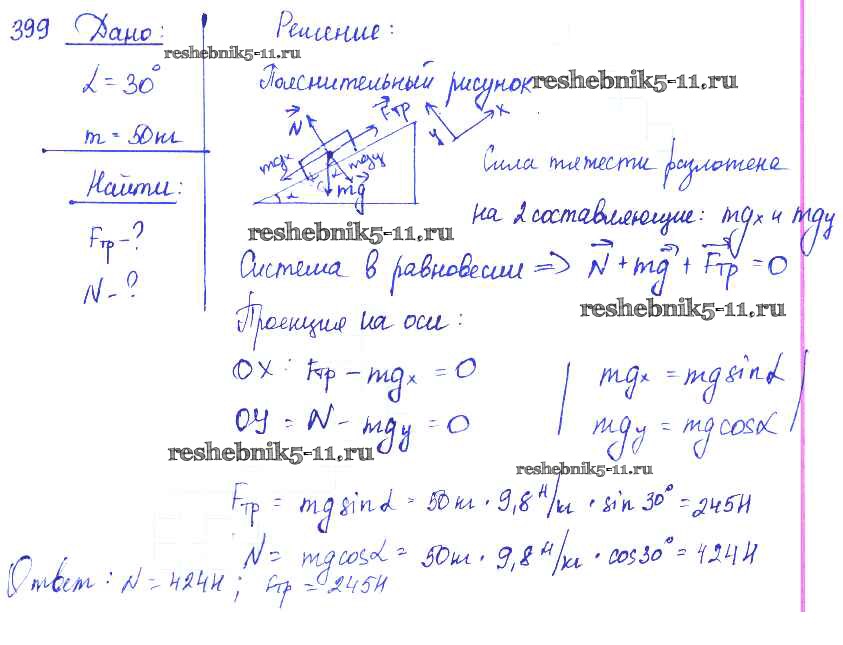 399 Дано:
Решение:
reshebnik5-11.ru
α = 30°
Пояснительный рисунок
reshebnik5-11.ru
m = 50кг
N Fтр x y
mgx mgy
α α
mg
Сила тяжести разложена
на 2 составляющие: mgx и mgy
Найти:
Fтр - ?
N - ?
reshebnik5-11.ru
Система в равновесии => N + mg + Fтр = 0
reshebnik5-11.ru
Проекция на оси:
OX: Fтр - mgx = 0
mgx = mg sinα
OY = N - mgy = 0
mgy = mg cosα
reshebnik5-11.ru
reshebnik5-11.ru
Fтр = mg sinα = 50кг · 9,8 Н/кг · sin 30° = 245Н
N = mg cosα = 50кг · 9,8 Н/кг · cos30° = 424Н
Ответ: N = 424Н; Fтр = 245Н